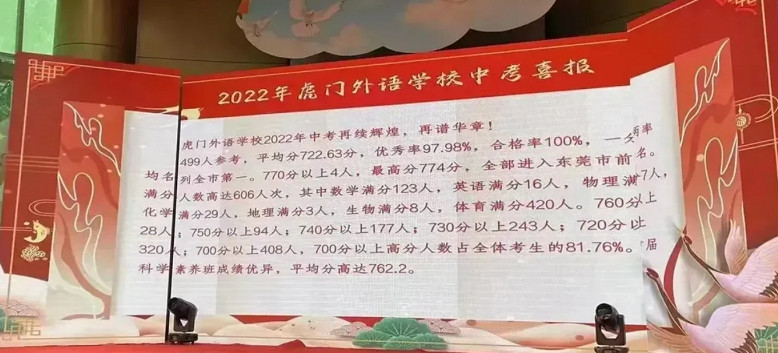 2022年虎门外语学校中考喜报
虎门外语学校2022年中考再续辉煌，再谱华章！
499人参考，平均分722.63分，优秀率97.98%，合格率100%，一 率
均名列全市第一。770分以上4人，最高分774分，全部进入东莞市前 名。
满分人数高达606人次，其中数学满分123人，英语满分16人，物理满 7人，
化学满分29人，地理满分3人，生物满分8人，体育满分420人。760分以上
28人；750分以上94人；740分以上177人；730分以上243人；720分以上
320人；700分以上408人，700分以上高分人数占全体考生的81.76%。 届
科学素养班成绩优异，平均分高达762.2。